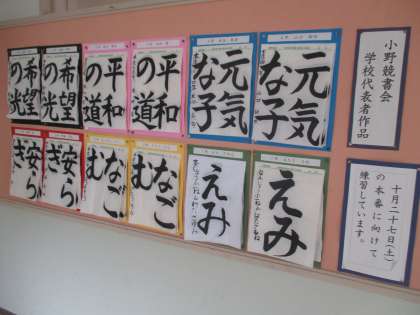 小野競書会
学校代表者作品
十月二十七日(土)
の本番に向けて
練習しています。
元気
な子
元気
な子
平和
の道
平和
の道
希望
の光
希望
の光
えみ
えみ
なご
む
なご
む
安ら
ぎ
安ら
ぎ